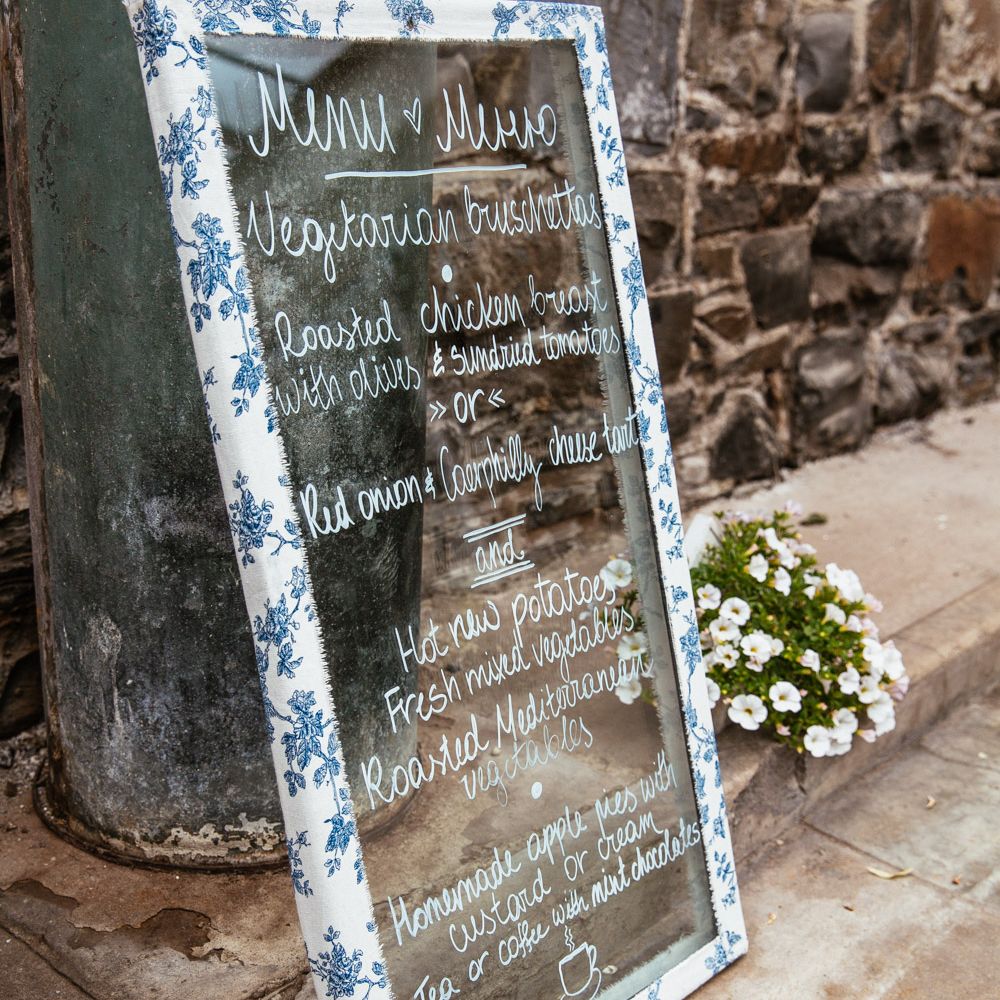 Menu ♡ Меню
Vegetarian bruschettas
•
Roasted chicken breast
with olives & sundried tomatoes
»or«
Red onion & Caerphilly cheese tart
and
Hot new potatoes
Fresh mixed vegetables
Roasted Mediterranean
vegetables
•
Homemade apple pies with
custard or cream
Tea or coffee with mint chocolates